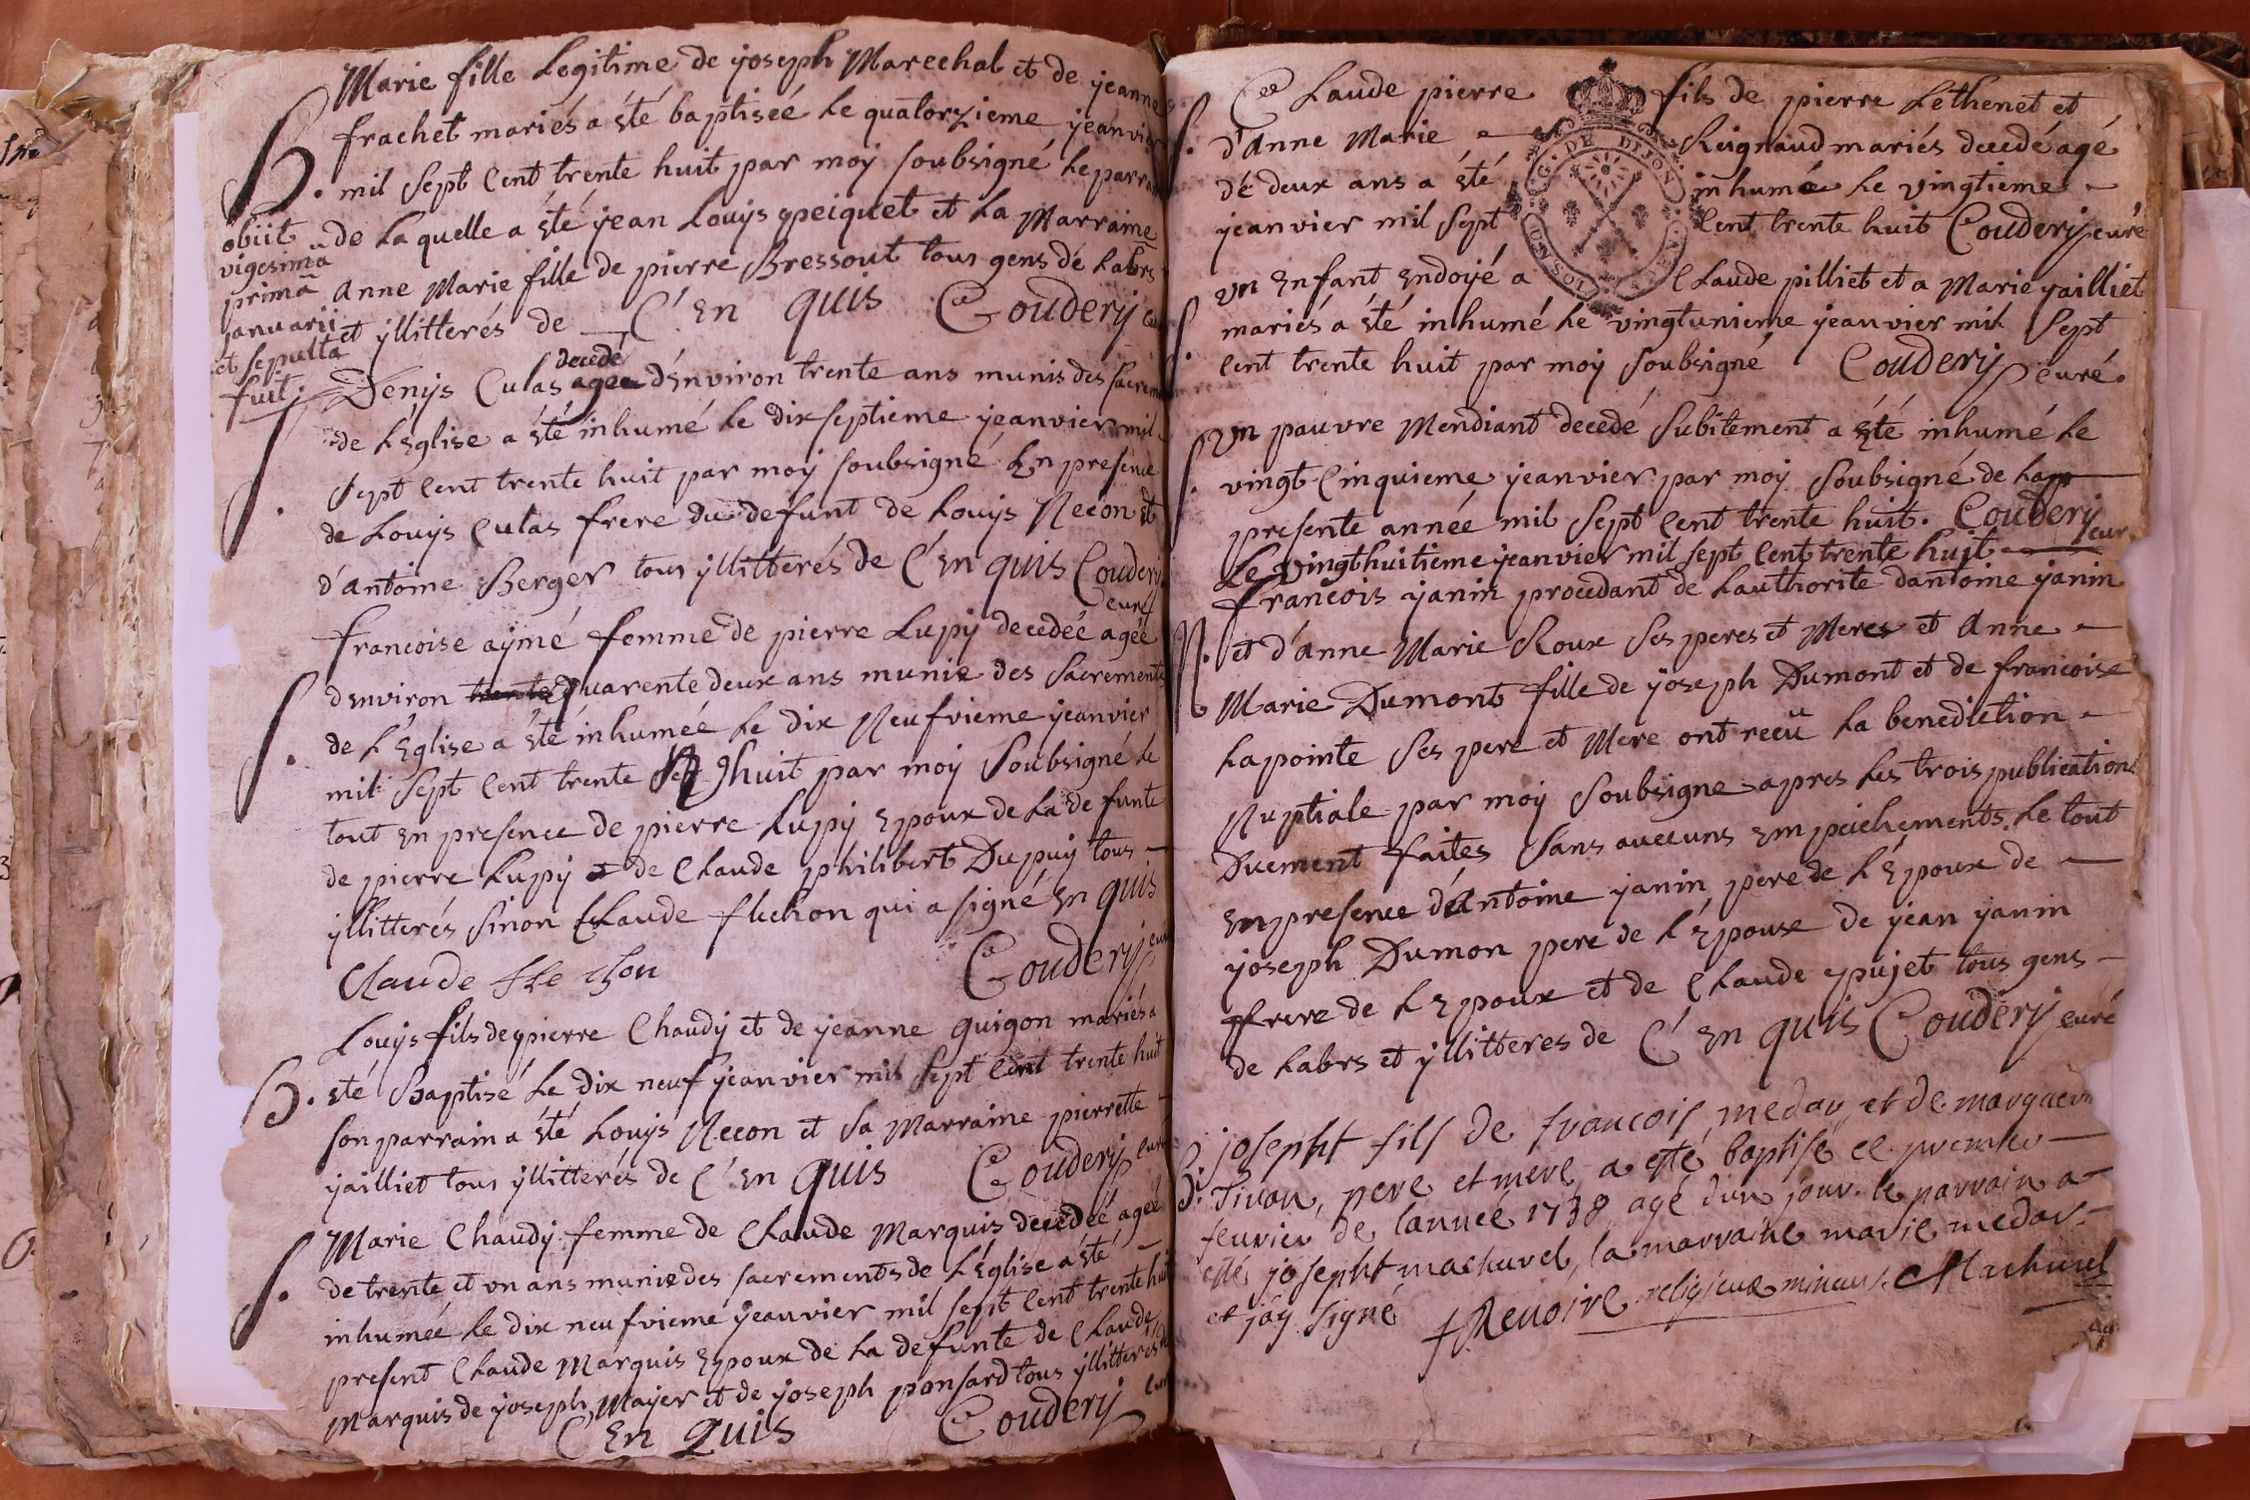 Marie fille Legitime de yoseph Marechal et de yeanne
frachet mariés a été baptiseé Le quatorzieme yeanvier
B. mil sept Cent trente huit par moy soubsigné Le parrain
de La quelle a été yean Louys peiquet et La Marraine
anne Marie fille de pierre Bressout tous gens de Labrs
et yllitterés de C'En quis Couderÿ
obiit
vigesima
prima
januarii
et sepulta
fuit
Denys Culas decedé ageé d'Environ trente ans munis des sacrem
de L'Eglise a été inhumé Le dix septieme yeanvier mil
S. sept Cent trente huit par moy soubsigné En presence
de Louys Culas frere du defunt de Louys Necon et
d'antoine Berger tous yllitterés de C'En quis Couderÿ
curé
francoise aymé femme de pierre Lupy decedeé ageé
d'Environ trente quarente deux ans munie des sacrements
S. de L'Eglise a été inhumeé Le dix Neufvieme yeanvier
mil sept Cent trente huit par moy soubsigné Le
tout En presence de pierre Lupy Epoux de La defunte
de pierre Lupy et de Claude philibert Dupuy tous
yllitterés sinon Claude flechon qui a signé En quis
Claude fle chon Couderÿ
Louys fils de pierre Chaudy et de yeanne guigon mariés a
B. été Baptisé Le dix neuf yeanvier mil sept Cent trente huit
son parrain a été Louys Necon et sa Marraine pierrette
yailliet tous yllitterés de C'En quis Couderÿ curé
Marie Chaudy femme de Claude Marquis decedeé ageé
S. de trente et un ans munie des sacrements de L'Eglise a été
inhumeé Le dix neufvieme yeanvier mil sept Cent trente huit
present Claude Marquis Epoux de La defunte de Claude
Marquis de yoseph Mayer et de yoseph ponsard tous yllitterés
C'En quis Couderÿ
Claude pierre fils de pierre Lethenet et
S. d'Anne Marie Reignaud mariés decedé agé
de deux ans a été inhumé Le vingtieme
yeanvier mil sept Cent trente huit Couderÿ curé
G. DE DIJON
un Enfant Endoyé a Claude pilliet et a Marie yailliet
S. mariés a été inhumé Le vingtunieme yeanvier mil sept
Cent trente huit par moy soubsigné Couderÿ curé.
un pauvre Mendiant decedé subitement a été inhumé Le
S. vingt Cinquieme yeanvier par moy soubsigné de La
presente anneé mil sept Cent trente huit. Couderÿ
curé
Le vingthuitieme yeanvier mil sept Cent trente huit
francois yanin procedant de Lauthorite dantoine yanin
N. et d'anne Marie Roux ses peres et Meres et Anne
Marie Dumont fille de yoseph Dumont et de francoise
Lapointe ses pere et Mere ont recu La benediction
Nuptiale par moy soubsigne apres Les trois publications
Duement faites sans aucuns Empechements Le tout
En presence d'Antoine yanin pere de L'Epoux de
yoseph Dumon pere de L'Epouse de yean yanin
frere de L'Epoux et de Claude pujet tous gens
de Labrs et yllitteres de C'En quis Couderÿ curé
josepht fils de francois medav et de marguerit
B. Tivan, pere et mere a esté baptisé ce premier
feuvrier de lanneé 1738 agé d'un jour. le parrain a
esté josepht machurel, la marraine marie medav.
et jay signé f Renoire religieux mineur. Machurel